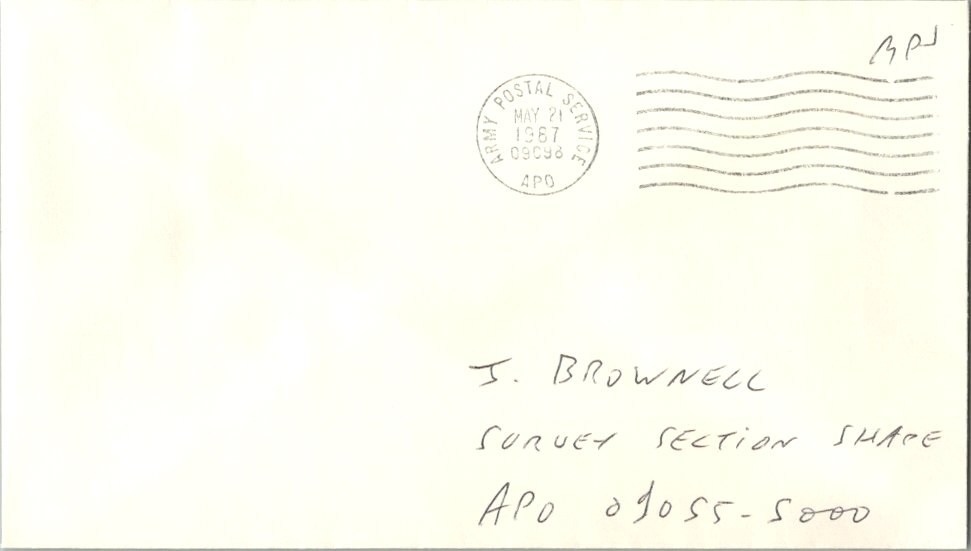 ARMY POSTAL SERVICE
MAY 21
1987
09098
APO
J. BROWNELL
SURVEY SECTION SHAPE
APO 09055-5000